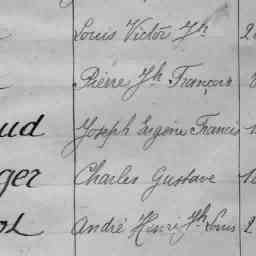 Louis Victor Jh
Pierre Jh François
ud Joseph Eugène Francis
ger Charles Gustave
ol André Henri Jh Louis 2